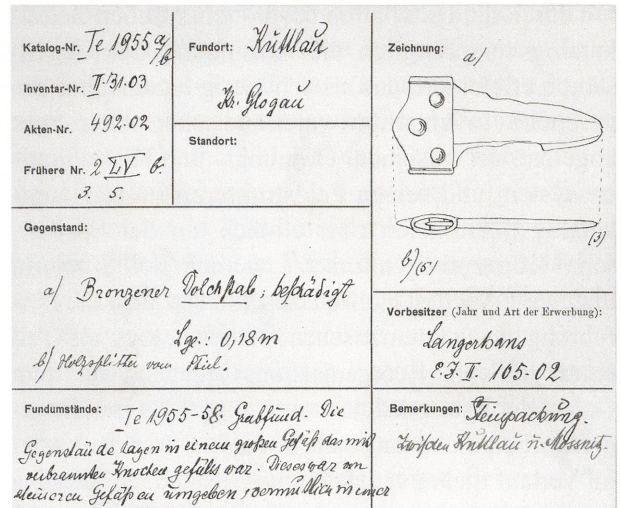 Katalog-Nr. Te 1955 a/b
Inventar-Nr. II·31·03
Akten-Nr. 492·02
Frühere Nr. 2 LV b.
3. 5.
Fundort: Kuttlau
Kr. Glogau
Standort:
Zeichnung: a)
(3)
b) (5)
Gegenstand:
a) Bronzener Dolchstab; beschädigt
Lge.: 0,18 m
b) Holzsplitter vom Stiel.
Vorbesitzer (Jahr und Art der Erwerbung):
Langerhans
E.J. II· 105·02
Fundumstände: Te 1955-58. Grabfund. Die
Gegenstände lagen in einem großen Gefäß das mit
verbrannten Knochen gefüllt war. Dieses war von
kleineren Gefäßen umgeben, vermutlich in einer
Bemerkungen: Steinpackung.
Zwischen Kuttlau u.